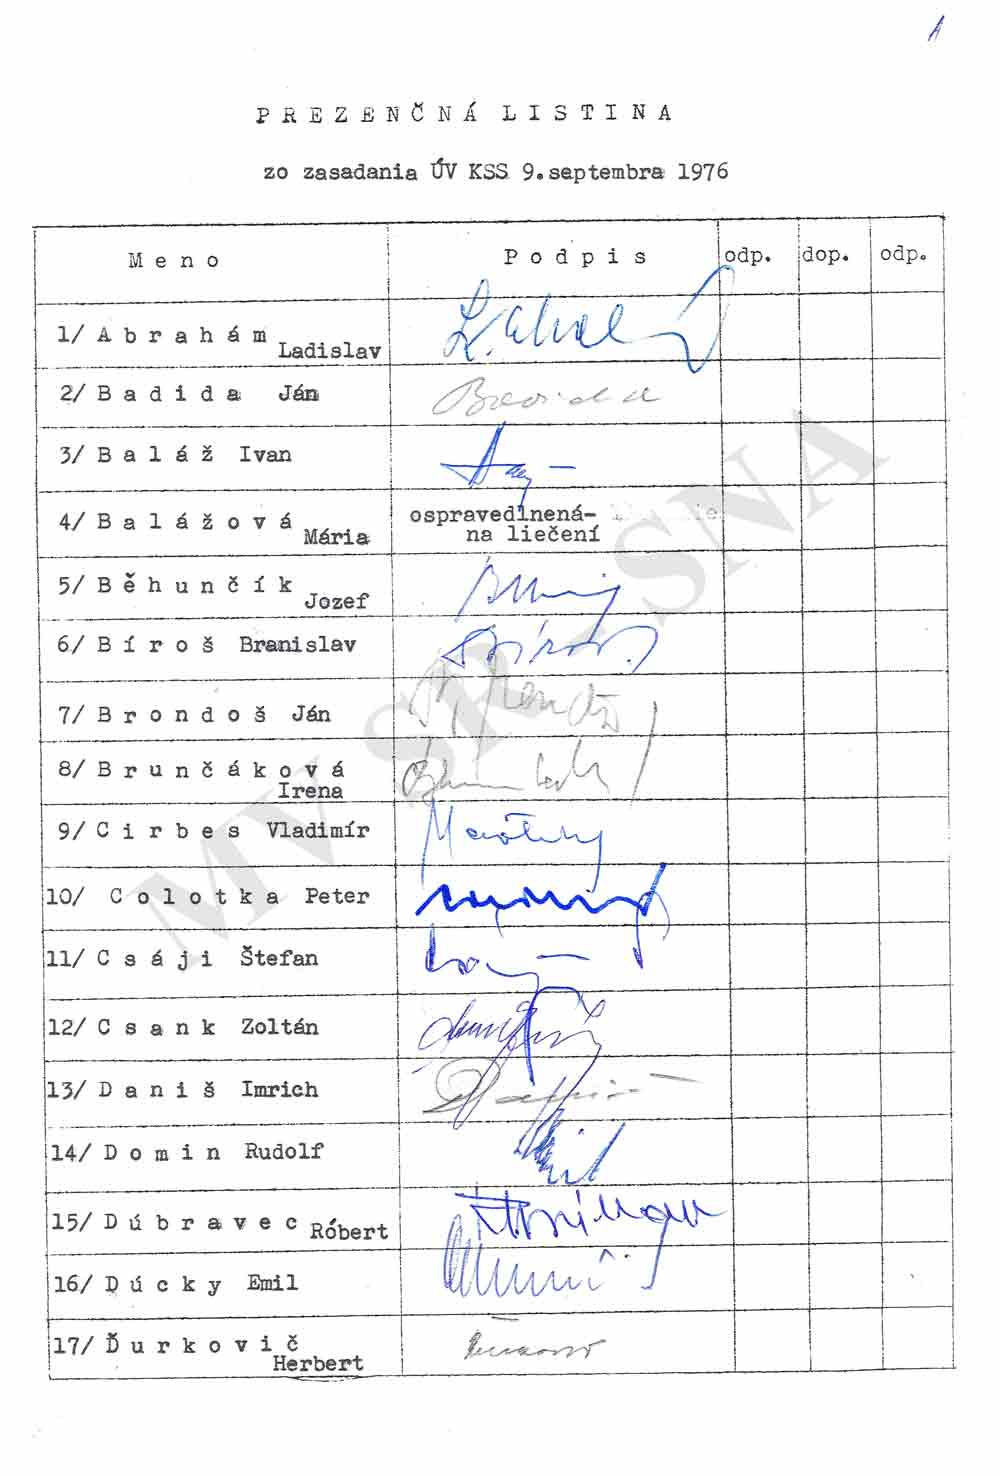 A
PREZENČNÁ LISTINA
zo zasadania ÚV KSS 9.septembra 1976
Meno Podpis odp. dop. odp.
1/ Abrahám Ladislav
2/ Badida Ján
3/ Baláž Ivan
4/ Balážová Mária ospravedlnená-
na liečení
5/ Běhunčík Jozef
6/ Bíroš Branislav
7/ Brondoš Ján
8/ Brunčáková Irena
9/ Cirbes Vladimír
10/ Colotka Peter
11/ Csáji Štefan
12/ Csank Zoltán
13/ Daniš Imrich
14/ Domin Rudolf
15/ Dúbravec Róbert
16/ Dúcky Emil
17/ Ďurkovič Herbert
MV SR SNA